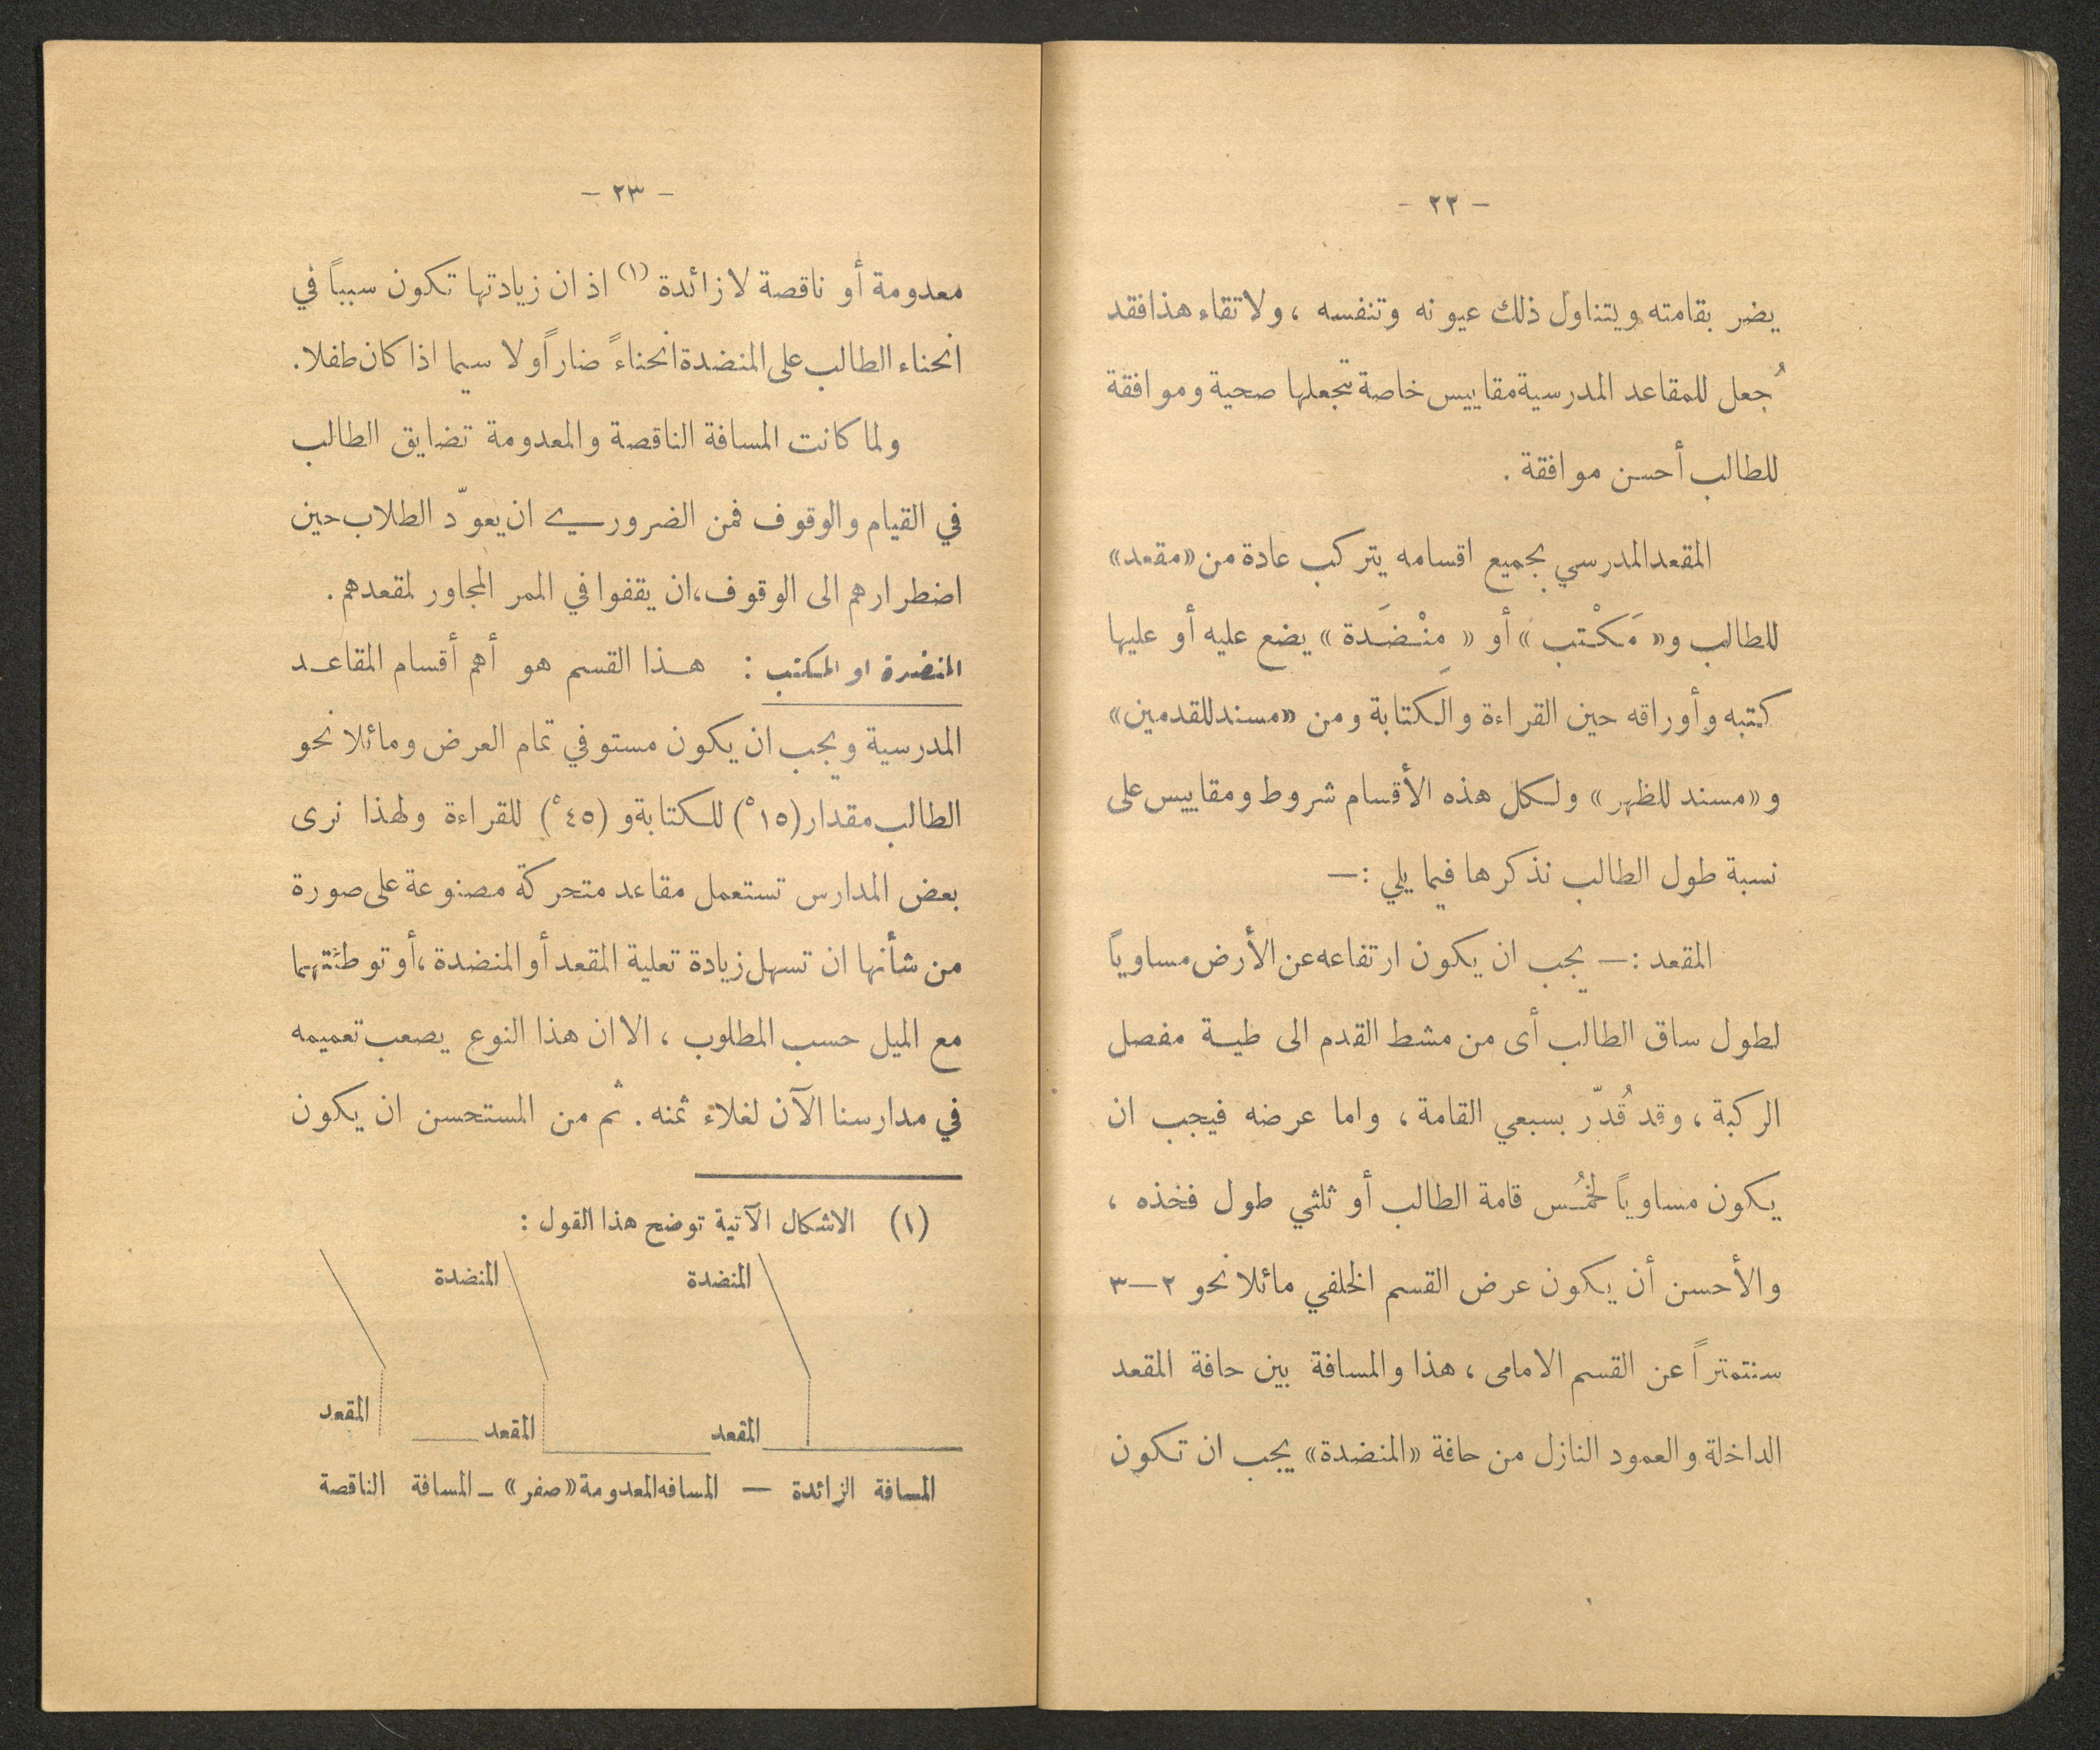 - ٢٢ -
يضر بقامته ويتناول ذلك عيونه وتنفسه ، ولاتقاء هذا فقد
جُعل للمقاعد المدرسية مقاييس خاصة تجعلها صحية وموافقة
للطالب أحسن موافقة .
المقعد المدرسي بجميع اقسامه يتركب عادة من «مقعد»
للطالب و« مَكْتب » أو « مِنْضَدة » يضع عليه أو عليها
كتبه وأوراقه حين القراءة والكتابة ومن «مسند للقدمين»
و«مسند للظهر» ولكل هذه الأقسام شروط ومقاييس على
نسبة طول الطالب نذكرها فيما يلي :—
المقعد :— يجب ان يكون ارتفاعه عن الأرض مساوياً
لطول ساق الطالب أى من مشط القدم الى طية مفصل
الركبة ، وقد قُدّر بسبعي القامة ، واما عرضه فيجب ان
يكون مساوياً لخمُس قامة الطالب أو ثلثي طول فخذه ،
والأحسن أن يكون عرض القسم الخلفي مائلا نحو ٢—٣
سنتمتراً عن القسم الامامى ، هذا والمسافة بين حافة المقعد
الداخلة والعمود النازل من حافة «المنضدة» يجب ان تكون
- ٢٣ -
معدومة أو ناقصة لا زائدة (١) اذ ان زيادتها تكون سبباً في
انحناء الطالب على المنضدة انحناءً ضاراً ولا سيما اذا كان طفلا.
ولما كانت المسافة الناقصة والمعدومة تضايق الطالب
في القيام والوقوف فمن الضروري ان يعوّد الطلاب حين
اضطرارهم الى الوقوف، ان يقفوا في الممر المجاور لمقعدهم.
المنضدة او المكتب : هذا القسم هو أهم أقسام المقاعد
المدرسية ويجب ان يكون مستوفي تمام العرض ومائلا نحو
الطالب مقدار (١٥°) للكتابة و (٤٥°) للقراءة ولهذا نرى
بعض المدارس تستعمل مقاعد متحركة مصنوعة على صورة
من شأنها ان تسهل زيادة تعلية المقعد أو المنضدة ، أو توطئتهما
مع الميل حسب المطلوب ، الا ان هذا النوع يصعب تعميمه
في مدارسنا الآن لغلاء ثمنه . ثم من المستحسن ان يكون
(١) الاشكال الآتية توضح هذا القول :
المنضدة المنضدة
المقعد المقعد المقعد
المسافة الزائدة — المسافه المعدومة «صفر» — المسافة الناقصة